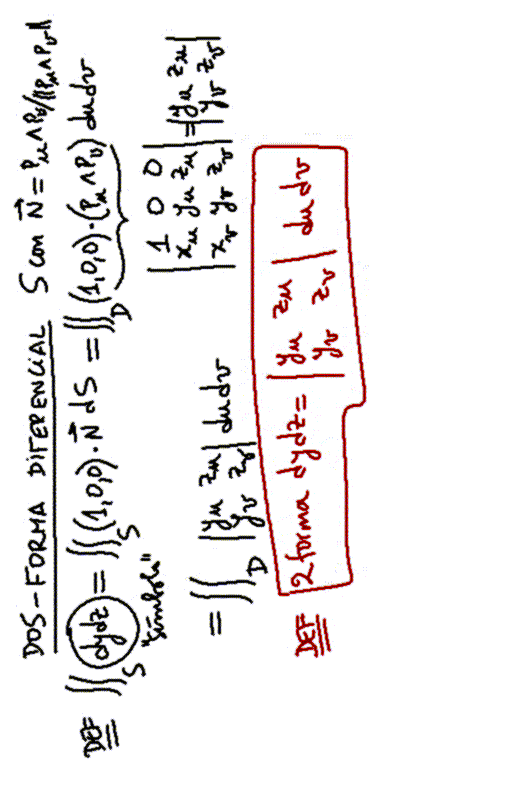 DOS-FORMA DIFERENCIAL S con N⃗ = Pu∧Pv/||Pu∧Pv||
DEF ∬_S dydz = ∬_S (1,0,0)·N⃗ dS = ∬_D (1,0,0)·(Pu∧Pv) dudv
"símbolo"
|1 0 0; xu yu zu; xv yv zv| = |yu zu; yv zv|
= ∬_D |yu zu; yv zv| dudv
DEF 2 forma dydz = |yu zu; yv zv| dudv